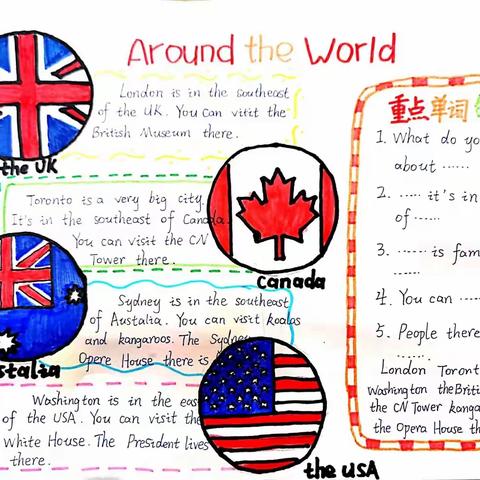 Around the World
London is in the southeast
of the UK. You can vitit the
British Museum there.
the UK
Toronto is a very big city.
It's in the southeast of Canada.
You can visit the CN
Tower there.
Canada
Sydney is in the southeast
of Austalia. You can visit koalas
and kangaroos. The Sydney
Opere House there is
stalia
Washington is in the eas
of the USA. You can visit the
white House. The President lives
there.
the USA
重点单词
1. What do yo
about ......
2. ...... it's in
of ......
3. ...... is fam
......
4. You can ......
5. People there
......
London Toront
Washington the Briti
the CN Tower kanga
the Opera House th